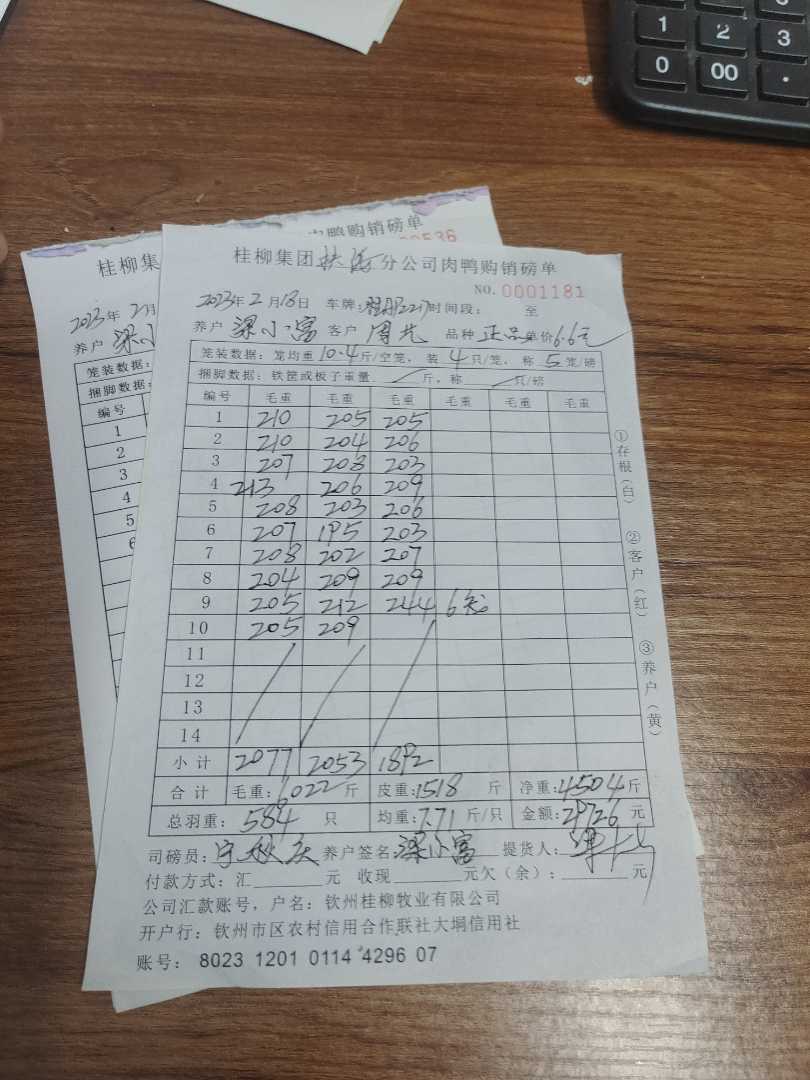 1 2 3
0 00 .
肉鸭购销磅单
桂柳集
2023年2月
养户 梁小
笼装数据:
捆脚数据:
编号
1
2
3
4
5
6
桂柳集团 分公司肉鸭购销磅单
NO. 0001181
2023年2月18日 车牌: 时间段: 至
养户 梁小富 客户 品种 正品 单价6.6元
笼装数据: 笼均重10.4斤/空笼, 装 4只/笼, 称 5笼/磅
捆脚数据: 铁筐或板子重量 斤, 称 只/磅
编号 毛重 毛重 毛重 毛重 毛重 毛重
1 210 205 205
2 210 204 206
3 207 208 203
4 213 206 209
5 208 203 206
6 207 195 203
7 208 202 207
8 204 209 209
9 205 212 244 6笼
10 205 209
11
12
13
14
小计 2077 2053 1892
合计 毛重:6022斤 皮重:1518 斤 净重:4504斤
总羽重: 584 只 均重:7.71斤/只 金额:29726元
司磅员: 养户签名:梁小富 提货人:
付款方式: 汇 元 收现 元欠(余): 元
公司汇款账号, 户名: 钦州桂柳牧业有限公司
开户行: 钦州市区农村信用合作联社大垌信用社
账号: 8023 1201 0114 4296 07
①存根(白)
②客户(红)
③养户(黄)